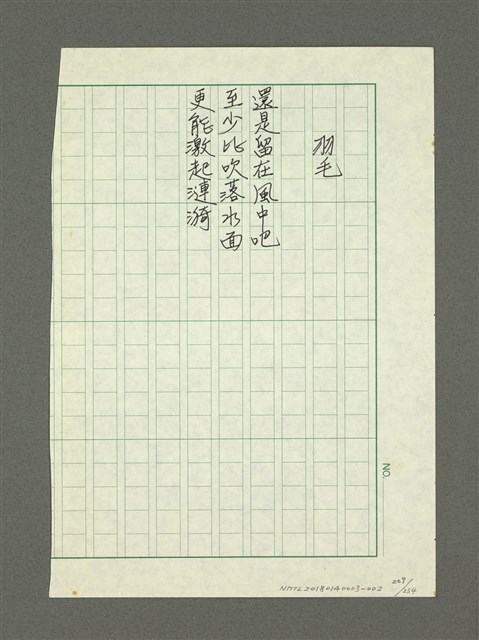 羽毛
還是留在風中吧
至少比吹落水面
更能激起漣漪
NO.
NMTL20180140003-002
229/254